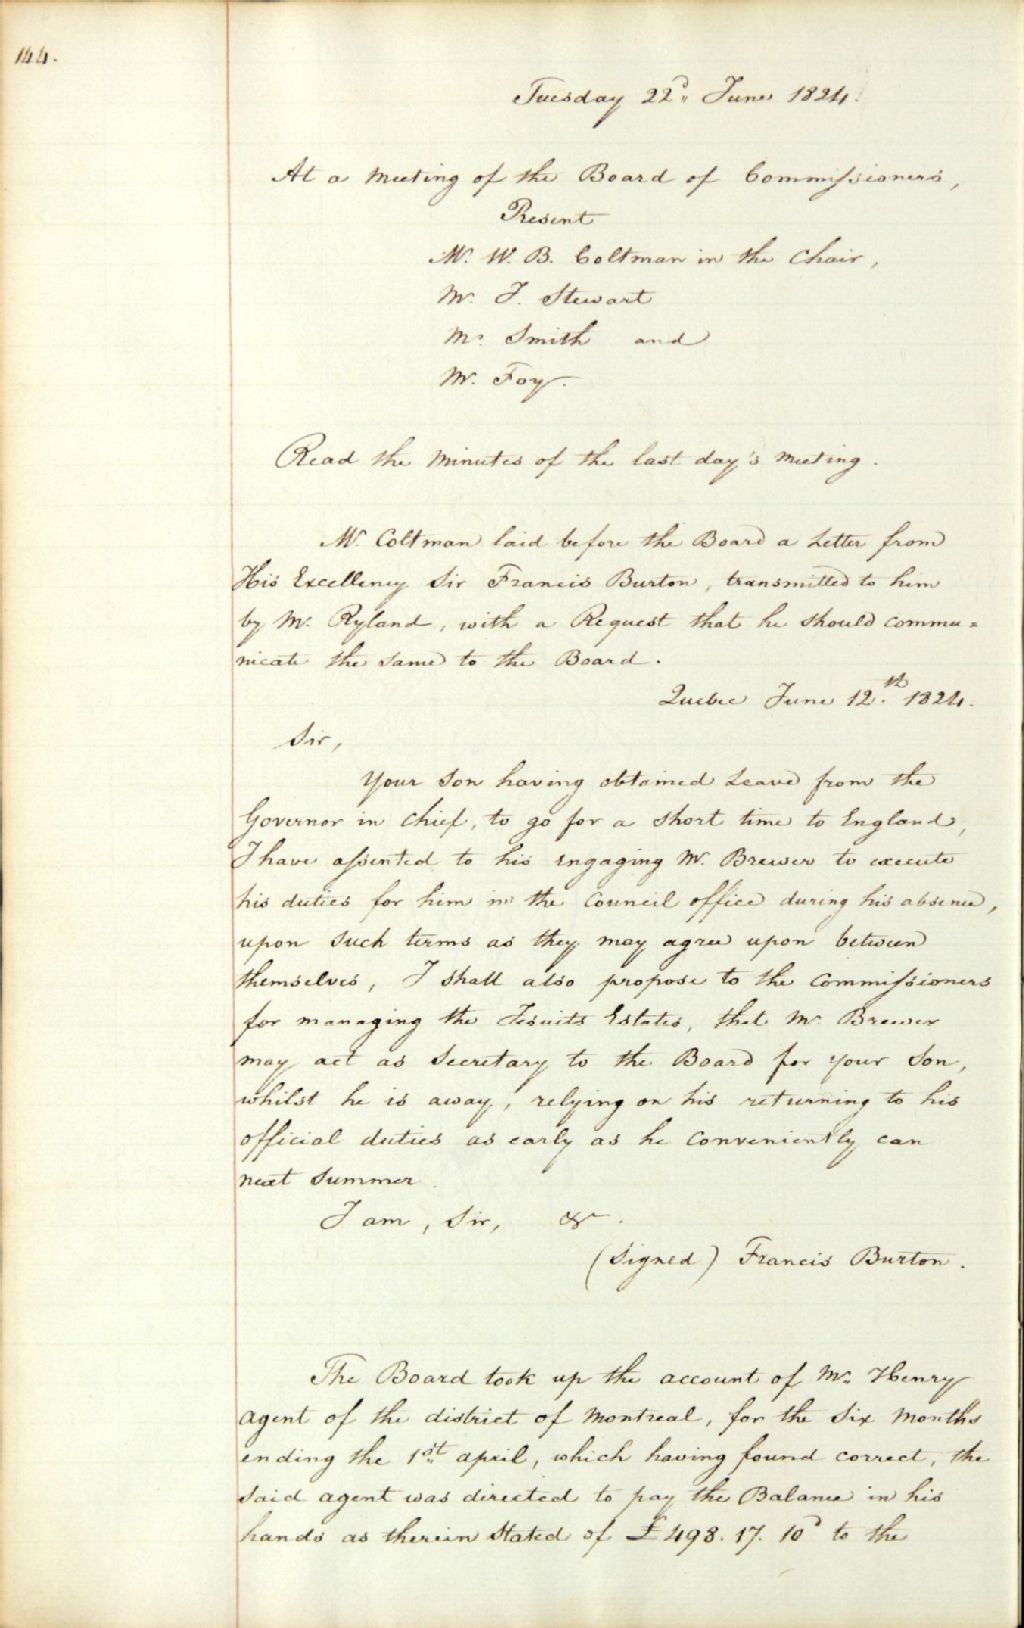 144.
Tuesday 22d June 1824.
At a meeting of the Board of Commissioners,
Present
Mr. W. B. Coltman in the Chair,
Mr. J. Stewart
Mr. Smith and
Mr. Foy.
Read the Minutes of the last day's meeting.
Mr. Coltman laid before the Board a Letter from
His Excellency Sir Francis Burton, transmitted to him
by Mr. Ryland, with a Request that he should commu=
nicate the same to the Board.
Quebec June 12.th 1824.
Sir,
Your Son having obtained Leave from the
Governor in Chief, to go for a short time to England,
I have assented to his engaging Mr. Brewer to execute
his duties for him in the Council office during his absence,
upon such terms as they may agree upon between
themselves, I shall also propose to the Commissioners
for managing the Jesuits Estates, that Mr. Brewer
may act as Secretary to the Board for your Son,
whilst he is away, relying on his returning to his
official duties as early as he conveniently can
next summer
I am, Sir, &c.
(Signed) Francis Burton.
The Board took up the account of Mr. Henry
Agent of the district of Montreal, for the Six Months
ending the 1st april, which having found correct, the
said agent was directed to pay the Balance in his
hands as therein Stated of £498. 17. 10d to the